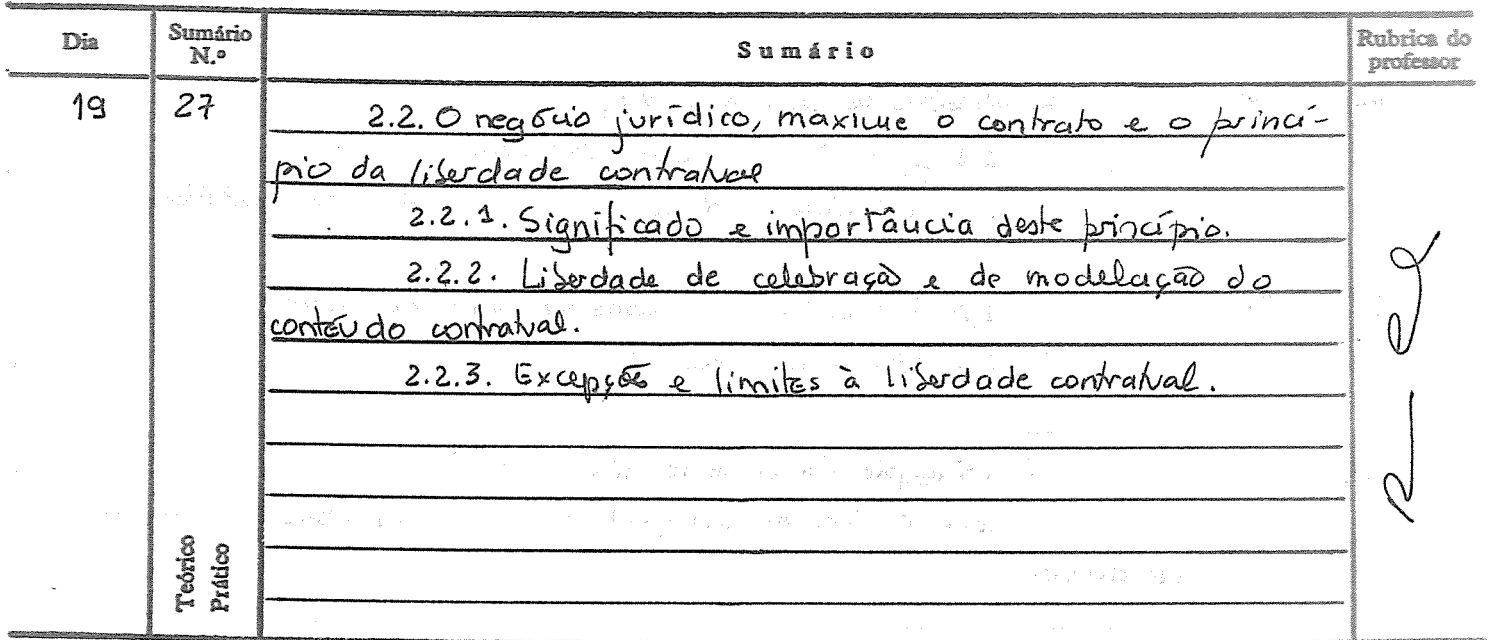 Dia Sumário N.º Sumário Rubrica do professor
19 27 2.2. O negócio jurídico, maxime o contrato e o princí-
pio da liberdade contratual
2.2.1. Significado e importância deste princípio.
2.2.2. Liberdade de celebração e de modelação do
conteúdo contratual.
2.2.3. Excepções e limites à liberdade contratual.
Teórico
Prático